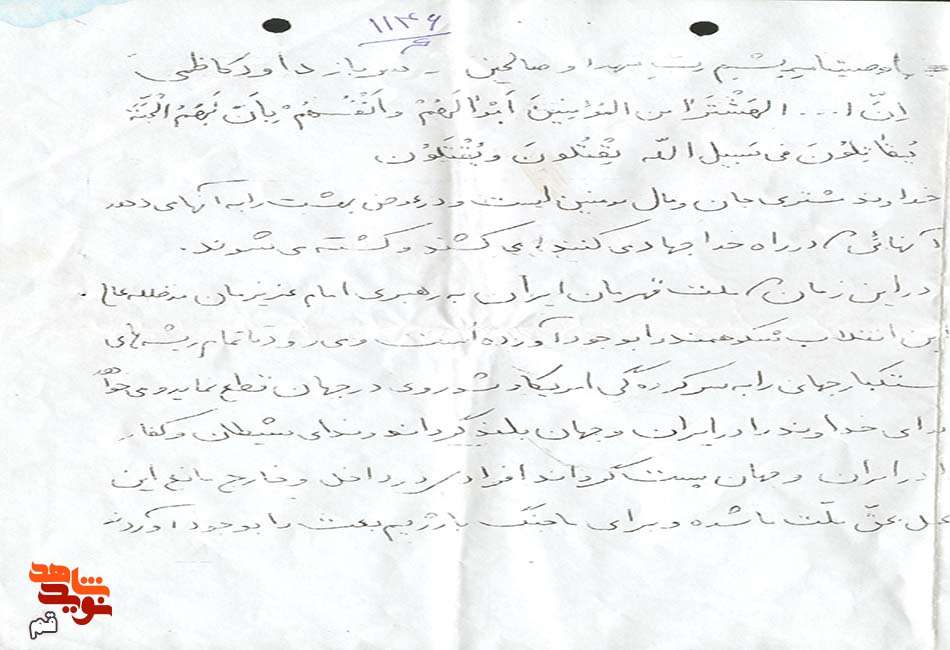 ۱۱۴۶
با وصیتنامه شهدا و صالحین - سرباز داود کاظمی
اِنَّ ا... الهَشْتَرَا من المؤمِنینَ اَبْوٰالَهُمْ واَنْفُسَهُمْ بِاَنَّ لَهُمُ الْجَنَّةَ
یُقٰاتِلوُنَ فی سَبیلِ اللّه یَقْتُلوُنَ ویُقْتَلوُن
خداوند مشتری جان و مال مومنین است و در عوض بهشت را به آنها می دهد
آنهائی در راه خدا جهاد می کنند، می کشند و کشته می شوند.
در این زمان ملت قهرمان ایران به رهبری امام عزیزمان مدظله عالی
این انقلاب شکوهمند را بوجود آورده است و می رود تا تمام ریشه های
استکبار جهانی را به سرکردگی امریکا و شوروی در جهان قطع نماید و می خواهد
ندای خداوند را در ایران و جهان بلند گرداند و ندای شیطان و کفار
را در ایران و جهان پست گرداند افرادی در داخل و خارج مانع این
عمل بحقّ ملّت ما شده و برای ما جنگ با رژیم بعث را بوجود آوردند
شاهد
نوید
قم